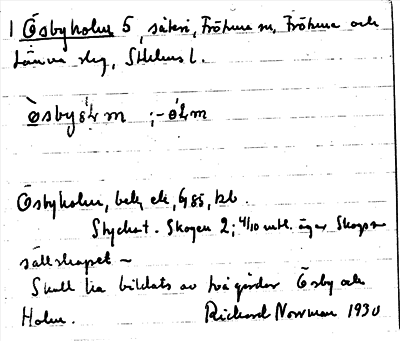 1 Ösbyholm 5, säteri, Frötuna sn, Frötuna och
Länna slg, Sthlms l.
Ösbyholm
Ösbyholm, bek, ek, G 85, kb.
Styckat. Skogen 2; 4/10 mtl. äger Skogs-
sällskapet ~
Skall ha bildats av två gårdar Ösby och
Holm. Rickard Norrman 1930